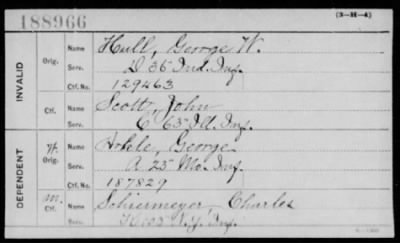 188966
(3-H-4)
INVALID
Orig.
Name Hull, George W.
Serv. D 36 Ind. Inf.
Ctf. No. 129463
Ctf.
Name Scott, John
Serv. C 63 Ill. Inf.
DEPENDENT
W.
Orig.
Name George
Serv. A 25 Mo. Inf.
Ctf. No. 187829
m.
Ctf.
Name Schiermeyer, Charles
Serv. N.Y. Inf.